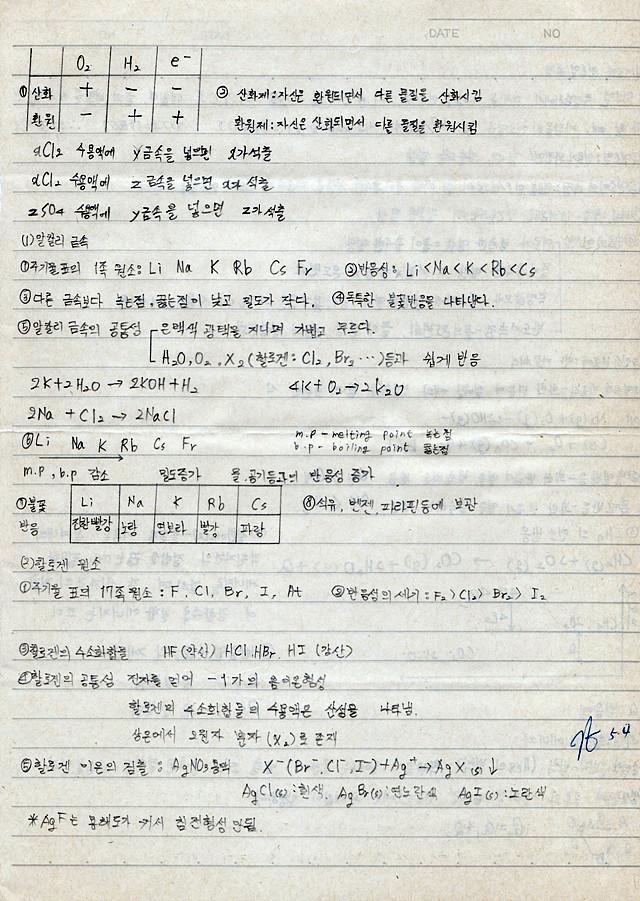 DATE NO
O₂ H₂ e⁻
① 산화 + − − ② 산화제 : 자신은 환원되면서 다른 물질을 산화시킴
환원 − + + 환원제 : 자신은 산화되면서 다른 물질을 환원시킴
xCl₂ 수용액에 y금속을 넣으면 x가 석출
xCl₂ 수용액에 z금속을 넣으면 x가 석출
zSO₄ 수용액에 y금속을 넣으면 z가 석출
(1) 알칼리 금속
①주기율표의 1족 원소 : Li Na K Rb Cs Fr ②반응성 : Li<Na<K<Rb<Cs
③다른 금속보다 녹는점, 끓는점이 낮고 밀도가 작다. ④독특한 불꽃반응을 나타낸다.
⑤알칼리 금속의 공통성 은백색 광택을 지니며 가볍고 무르다.
H₂O, O₂, X₂(할로겐 : Cl₂, Br₂ …)등과 쉽게 반응
2K+2H₂O → 2KOH+H₂ 4K+O₂→2K₂O
2Na +Cl₂ → 2NaCl
⑥Li Na K Rb Cs Fr m.p - melting point 녹는점
b.p - boiling point 끓는점
m.p, b.p 감소 밀도증가 물, 공기등과의 반응성 증가
⑦불꽃 Li Na K Rb Cs ⑧석유, 벤젠, 파라핀등에 보관
반응 진한빨강 노랑 연보라 빨강 파랑
(2) 할로겐 원소
①주기율 표의 17족 원소 : F, Cl, Br, I, At ②반응성의 세기 : F₂>Cl₂>Br₂>I₂
③할로겐의 수소화합물 HF(약산) HCl, HBr, HI (강산)
④할로겐의 공통성 전자를 얻어 −1가의 음이온형성
할로겐의 수소화합물의 수용액은 산성을 나타냄.
상온에서 2원자 분자(X₂)로 존재
5.4
⑤할로겐 이온의 검출 : AgNO₃용액 X⁻(Br⁻ Cl⁻, I⁻)+Ag⁺→AgX(s)↓
AgCl(s) : 흰색, AgBr(s) : 연노란색 AgI(s) : 노란색
*AgF는 용해도가 커서 침전형성 안됨.